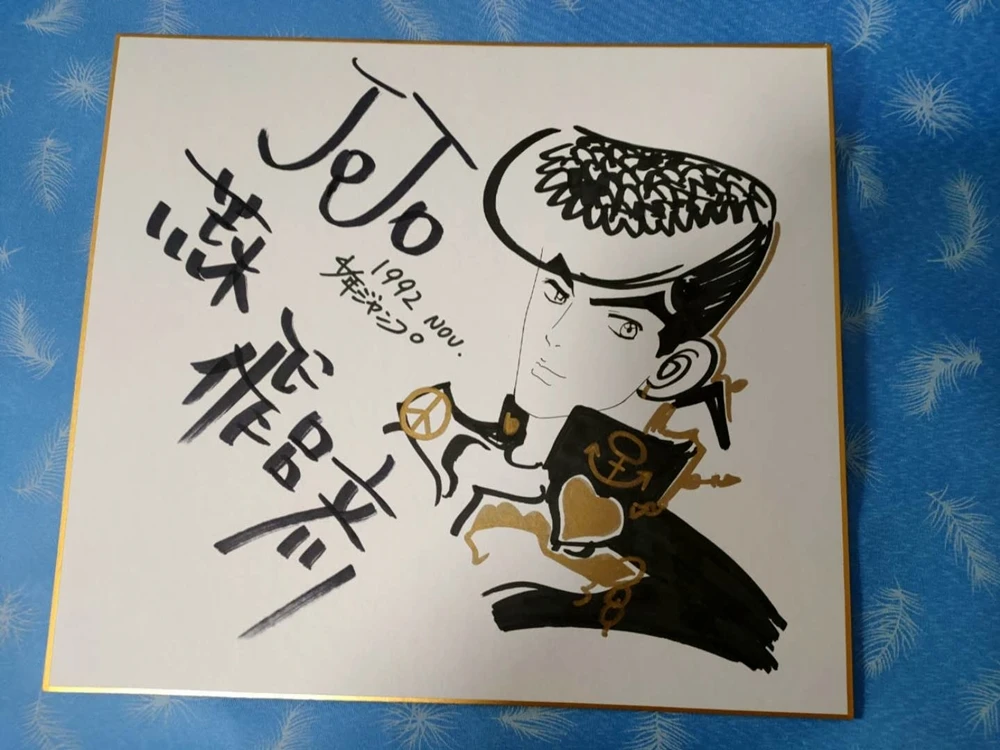 JoJo
1992 NOV.
少年ジャンプ
荒木飛呂彦